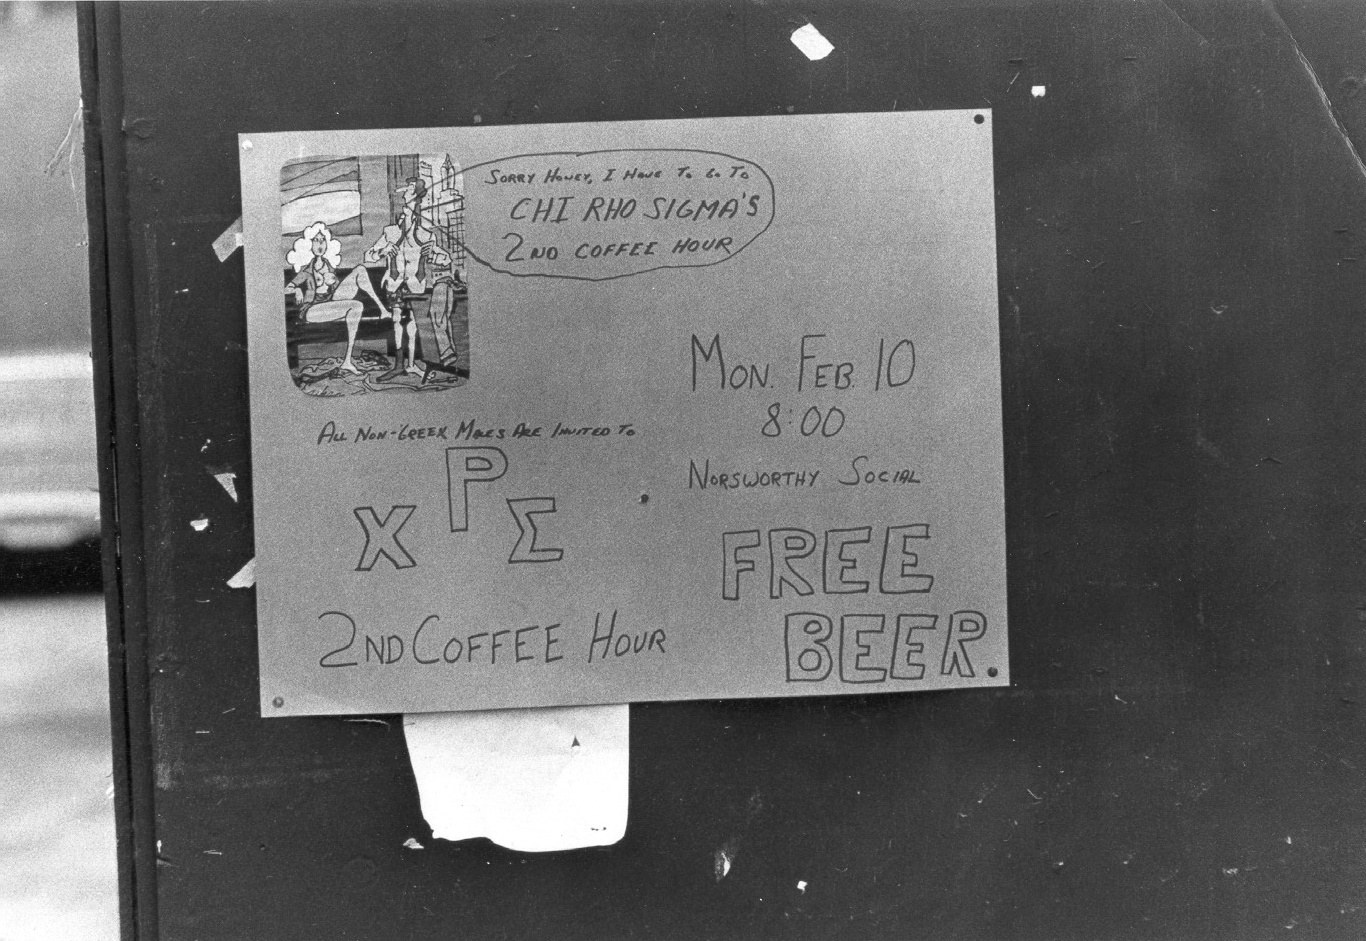 SORRY HONEY, I HAVE TO GO TO
CHI RHO SIGMA'S
2ND COFFEE HOUR
MON. FEB. 10
8:00
NORSWORTHY SOCIAL
FREE
BEER.
ALL NON-GREEK MALES ARE INVITED TO
XPΣ
2ND COFFEE HOUR